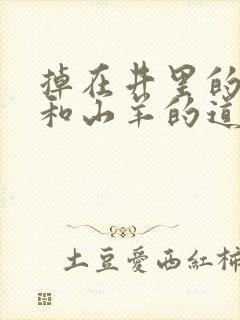 掉在井里的
和山羊的道
土豆愛西紅柿